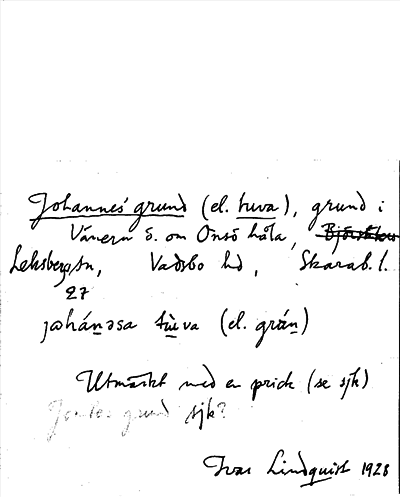 Johannes' grund (el. tuva), grund i
Vänern ö. om Onsö håla,
Leksbergs sn, Vadsbo hd, Skarab. l.
27
johánəsa tùva (el. grún)
Utmärkt med en prick (se sjk)
grund sjk?
Ivar Lindquist 1928